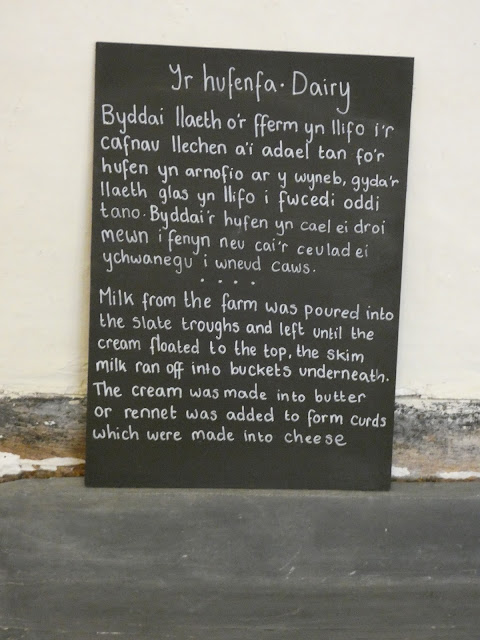 Yr hufenfa · Dairy
Byddai llaeth o'r fferm yn llifo i'r
cafnau llechen a'i adael tan fo'r
hufen yn arnofio ar y wyneb, gyda'r
llaeth glas yn llifo i fwcedi oddi
tano. Byddai'r hufen yn cael ei droi
mewn i fenyn neu cai'r ceulad ei
ychwanegu i wneud caws.
. . . .
Milk from the farm was poured into
the slate troughs and left until the
cream floated to the top, the skim
milk ran off into buckets underneath.
The cream was made into butter
or rennet was added to form curds
which were made into cheese